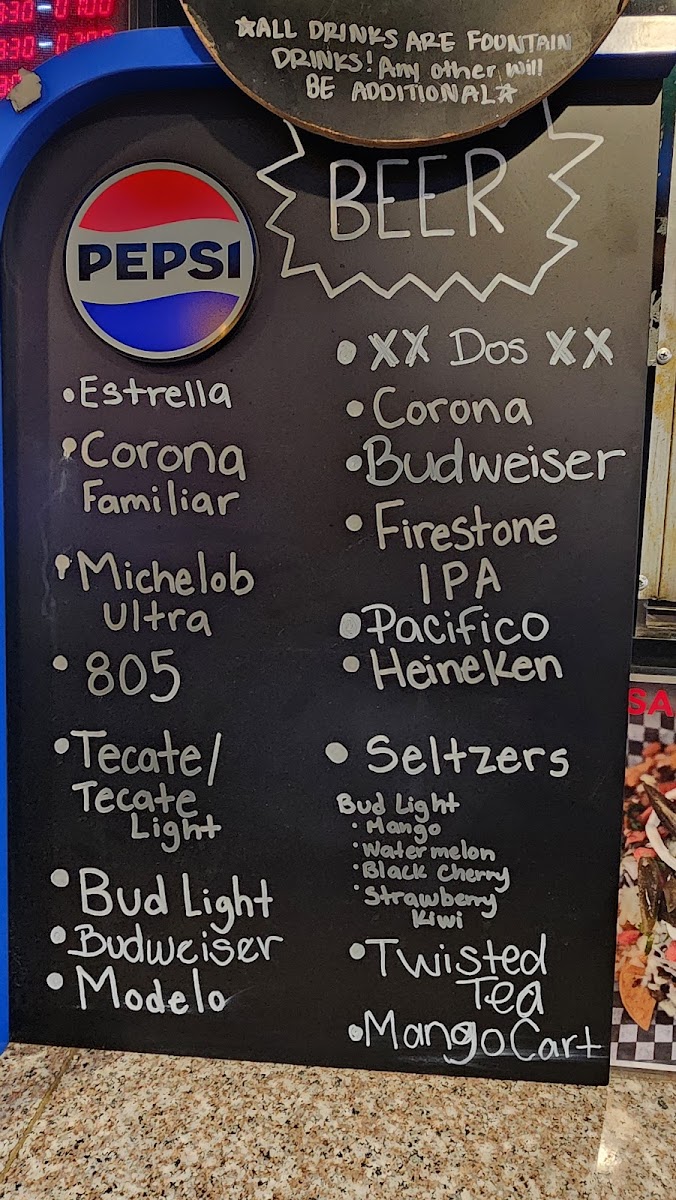 8:30 - 07:00
8:30 - 07:00
★ALL DRINKS ARE FOUNTAIN
DRINKS! Any other will
BE ADDITIONAL★
BEER
PEPSI
• Estrella
• Corona
Familiar
• Michelob
Ultra
• 805
• Tecate/
Tecate
Light
• Bud Light
• Budweiser
• Modelo
• XX Dos XX
• Corona
• Budweiser
• Firestone
IPA
• Pacifico
• Heineken
• Seltzers
Bud Light
• Mango
• Watermelon
• Black Cherry
• Strawberry
Kiwi
• Twisted
Tea
• Mango Cart
SA